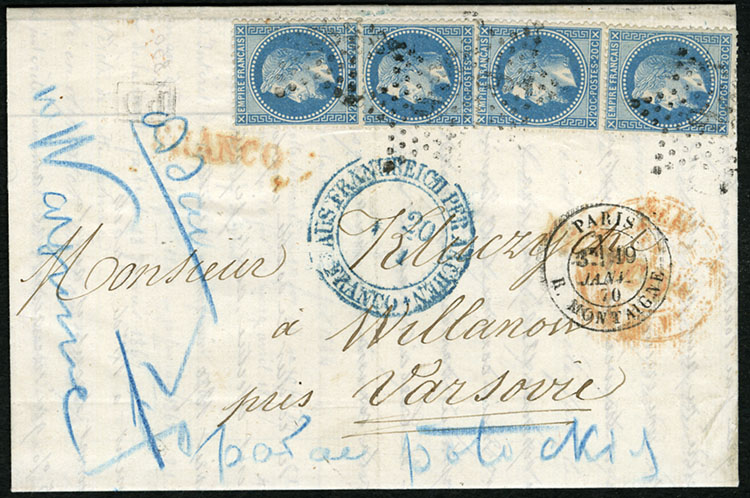 EMPIRE FRANCAIS
20C POSTES 20C
EMPIRE FRANCAIS
20C POSTES 20C
EMPIRE FRANCAIS
20C POSTES 20C
EMPIRE FRANCAIS
20C POSTES 20C
PD
FRANCO
AUS FRANKREICH PER AACHEN
20
1
FRANCO
PARIS
19
JANV.
70
R. MONTAIGNE
w Warszawie
Monsieur
à Willanow
près Varsovie
pałac potockich